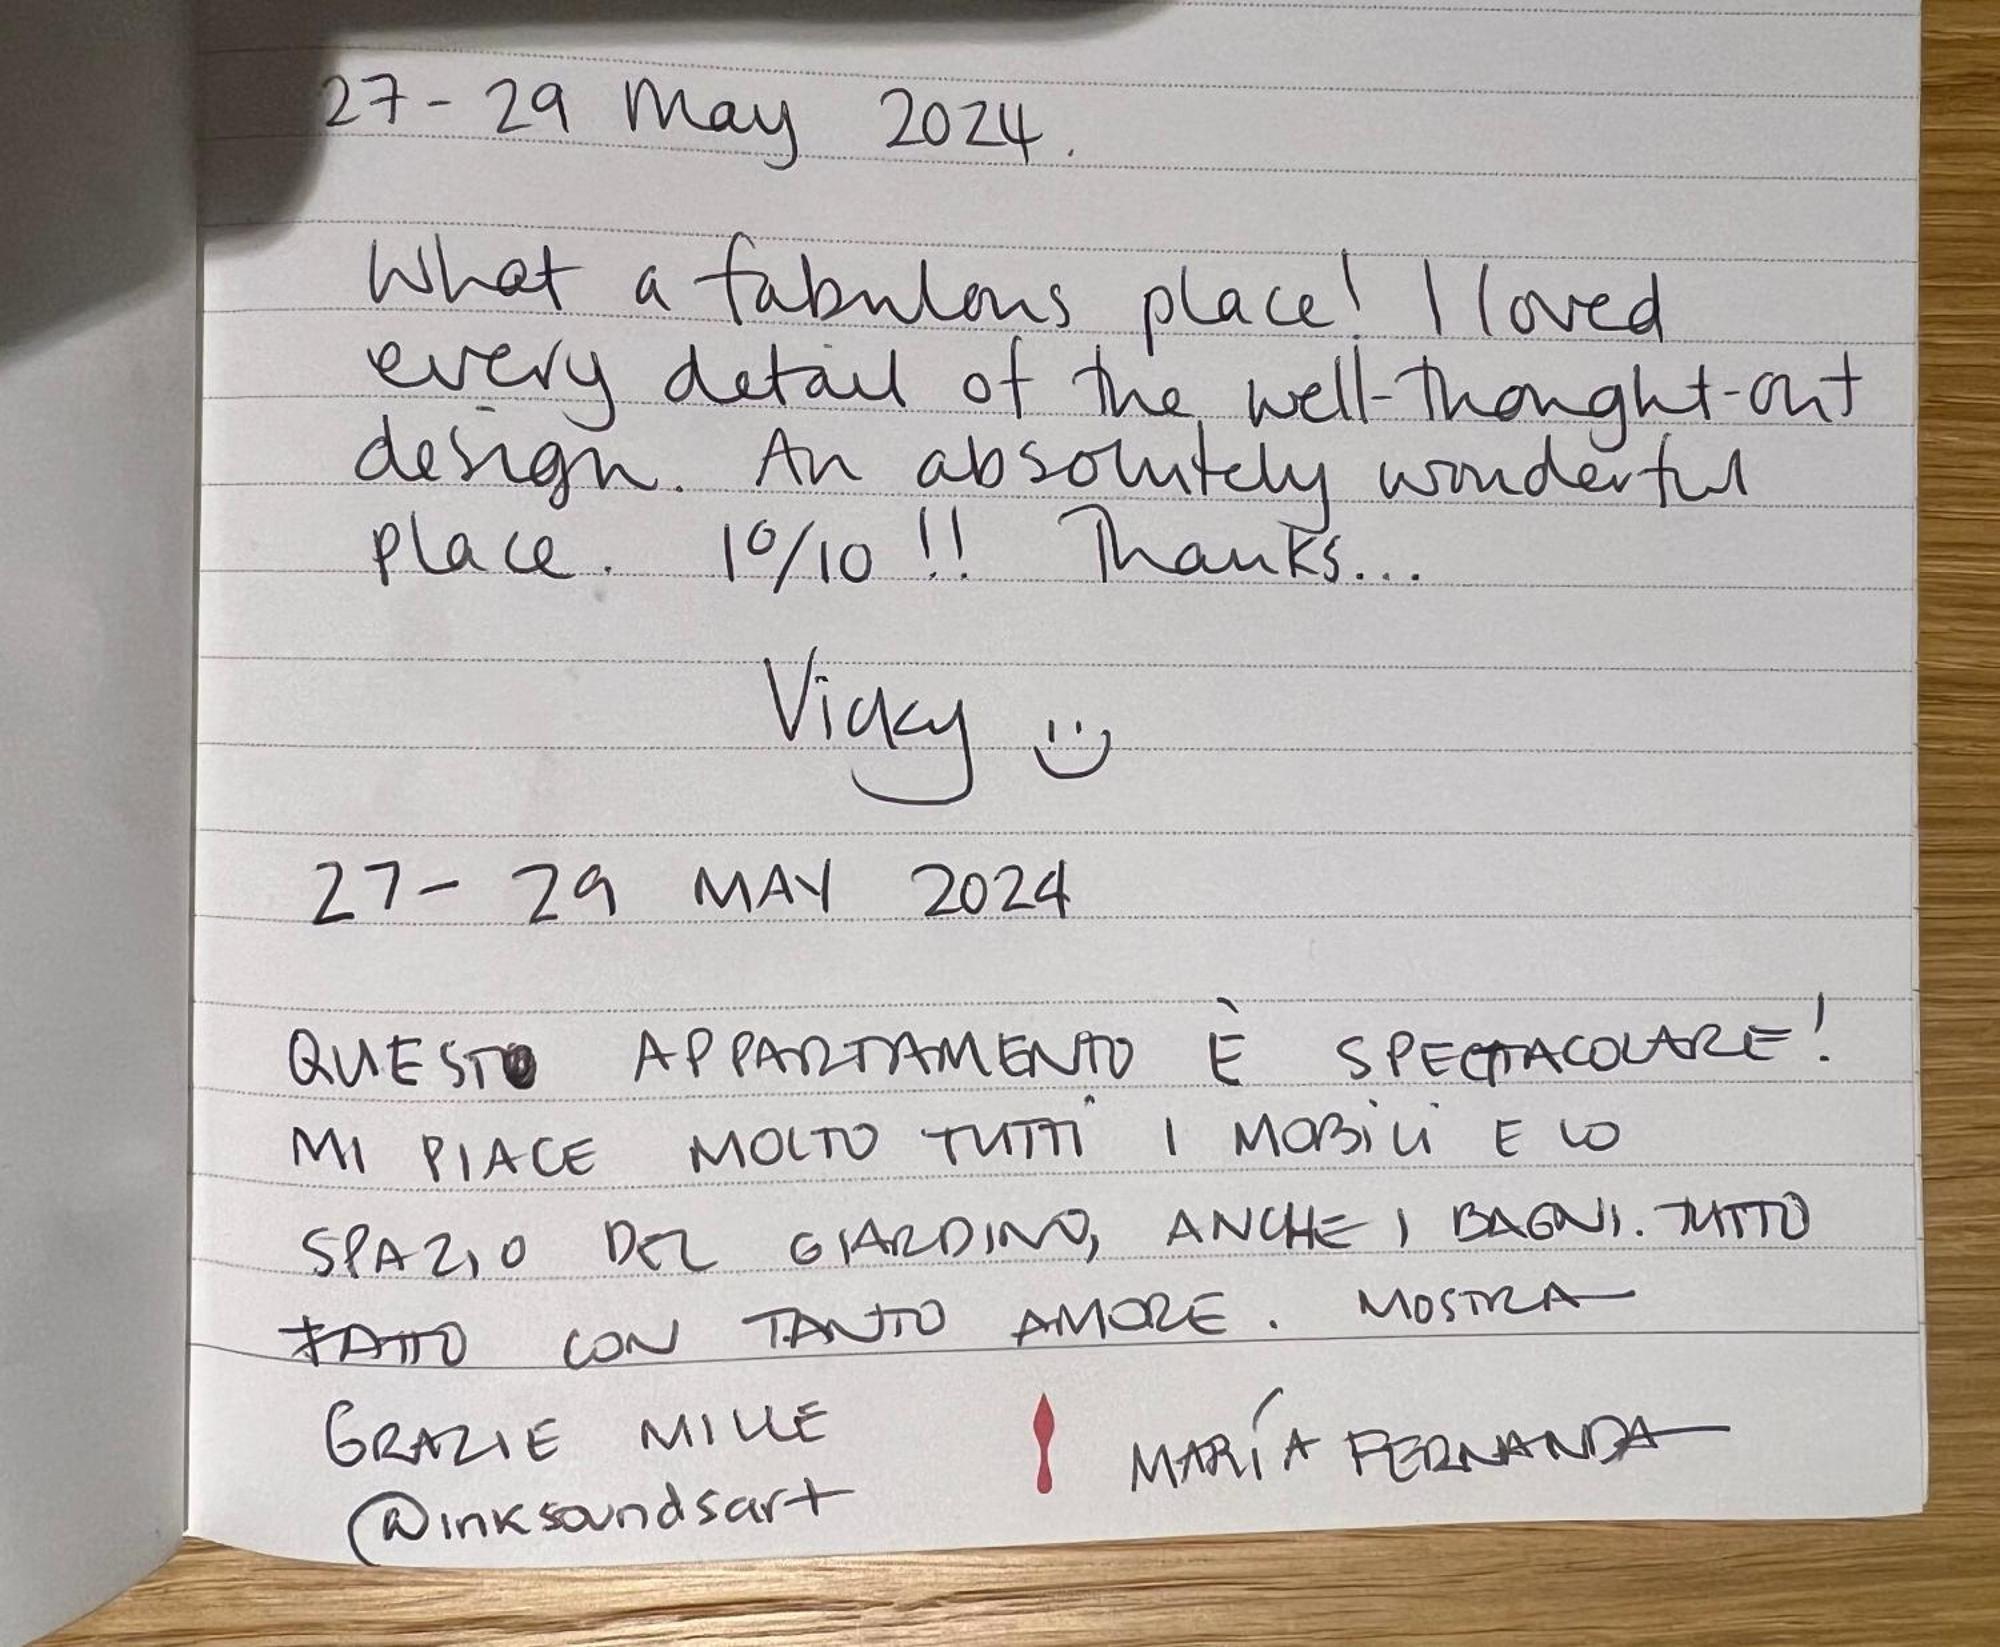 27-29 May 2024.
What a fabulous place! I loved
every detail of the well-thought-out
design. An absolutely wonderful
place. 10/10 !! Thanks...
Vicky
27- 29 MAY 2024
QUESTO APPARTAMENTO È SPECTACOLARE!
MI PIACE MOLTO TUTTI I MOBILI E LO
SPAZIO DEL GIARDINO, ANCHE I BAGNI. TUTTO
FATTO CON TANTO AMORE. MOSTRA
GRAZIE MILLE
MARÍA FERNANDA
@inksoundsart